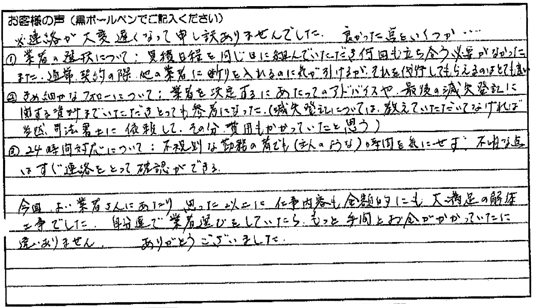 お客様の声（黒ボールペンでご記入ください）
※連絡が大変遅くなって申し訳ありませんでした。良かった点というか…
①業者の選択について：見積日程を同じ日に組んでいただき何回も立ち会う必要がなかった
また、通常契約の際、他の業者に断りを入れるのに気が引けるが、それを代行してもらえるのはとても良い
②きめ細やかなフォローについて：業者を決定するにあたってのアドバイスや、最後の滅失登記に
関する資料までいただきとっても参考になった。（滅失登記については、教えていただいてなければ
司法書士に依頼して、その分費用もかかっていたと思う）
③24時間対応について：不規則な勤務の者でも（主人のような）時間を気にせず、不明な点
はすぐ連絡をとって確認ができる。
今回、よい業者さんにあたり、思った以上に仕事内容も金額的にも大満足の解体
工事でした。自分達で業者選びをしていたら、もっと手間とお金がかかっていたに
違いありません。ありがとうございました。